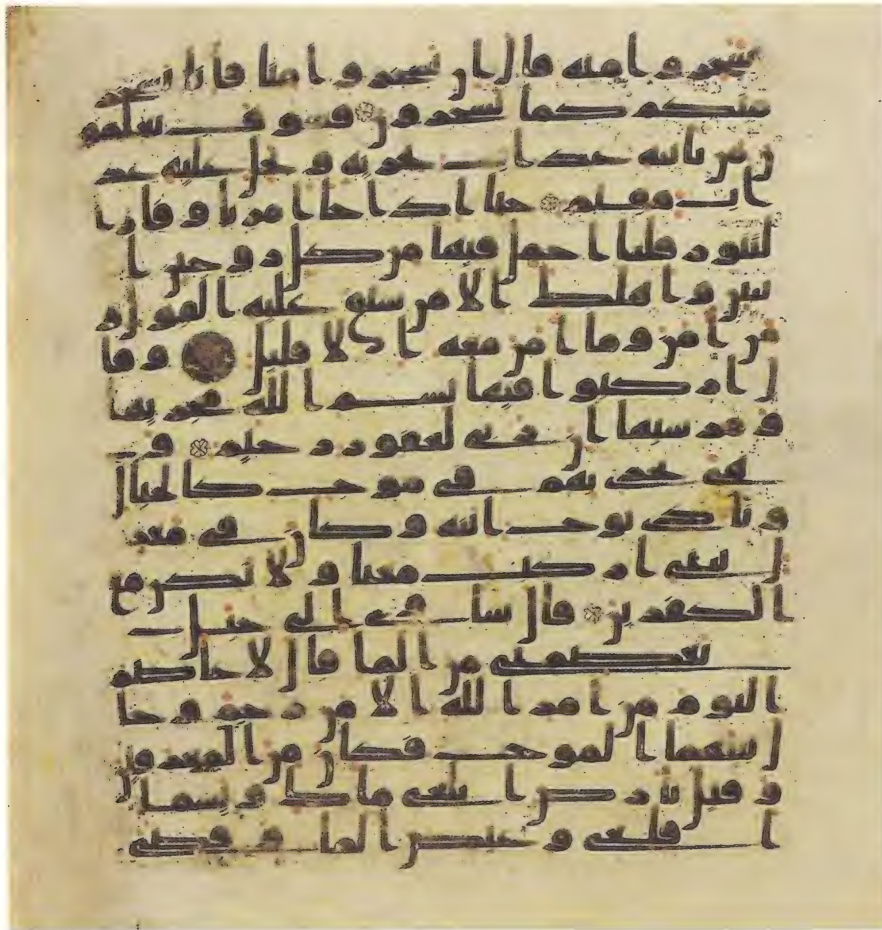 سخروا منه قال ان تسخروا منا فانا نسخر
منكم كما تسخرون فسوف تعلمو
ن من ياتيه عذاب يخزيه ويحل عليه عذ
اب مقيم حتا اذا جا امرنا وفار ا
لتنور قلنا احمل فيها من كل زوجين ا
ثنين واهلك الا من سبق عليه القول و
من امن وما امن معه الا قليل وقا
ل اركبوا فيها بسم الله مجريها
ومرسيها ان ربي لغفور رحيم و
هي تجري بهم في موج كالجبال
ونادى نوح ابنه وكان في معز
ل يبني اركب معنا ولا تكن مع
الكفرين قال ساوي الى جبل
يعصمني من الما قال لا عاصم
اليوم من امر الله الا من رحم وحا
ل بينهما الموج فكان من المغرقين
وقيل يارض ابلعي ماك ويسما
اقلعي وغيض الما وقضي